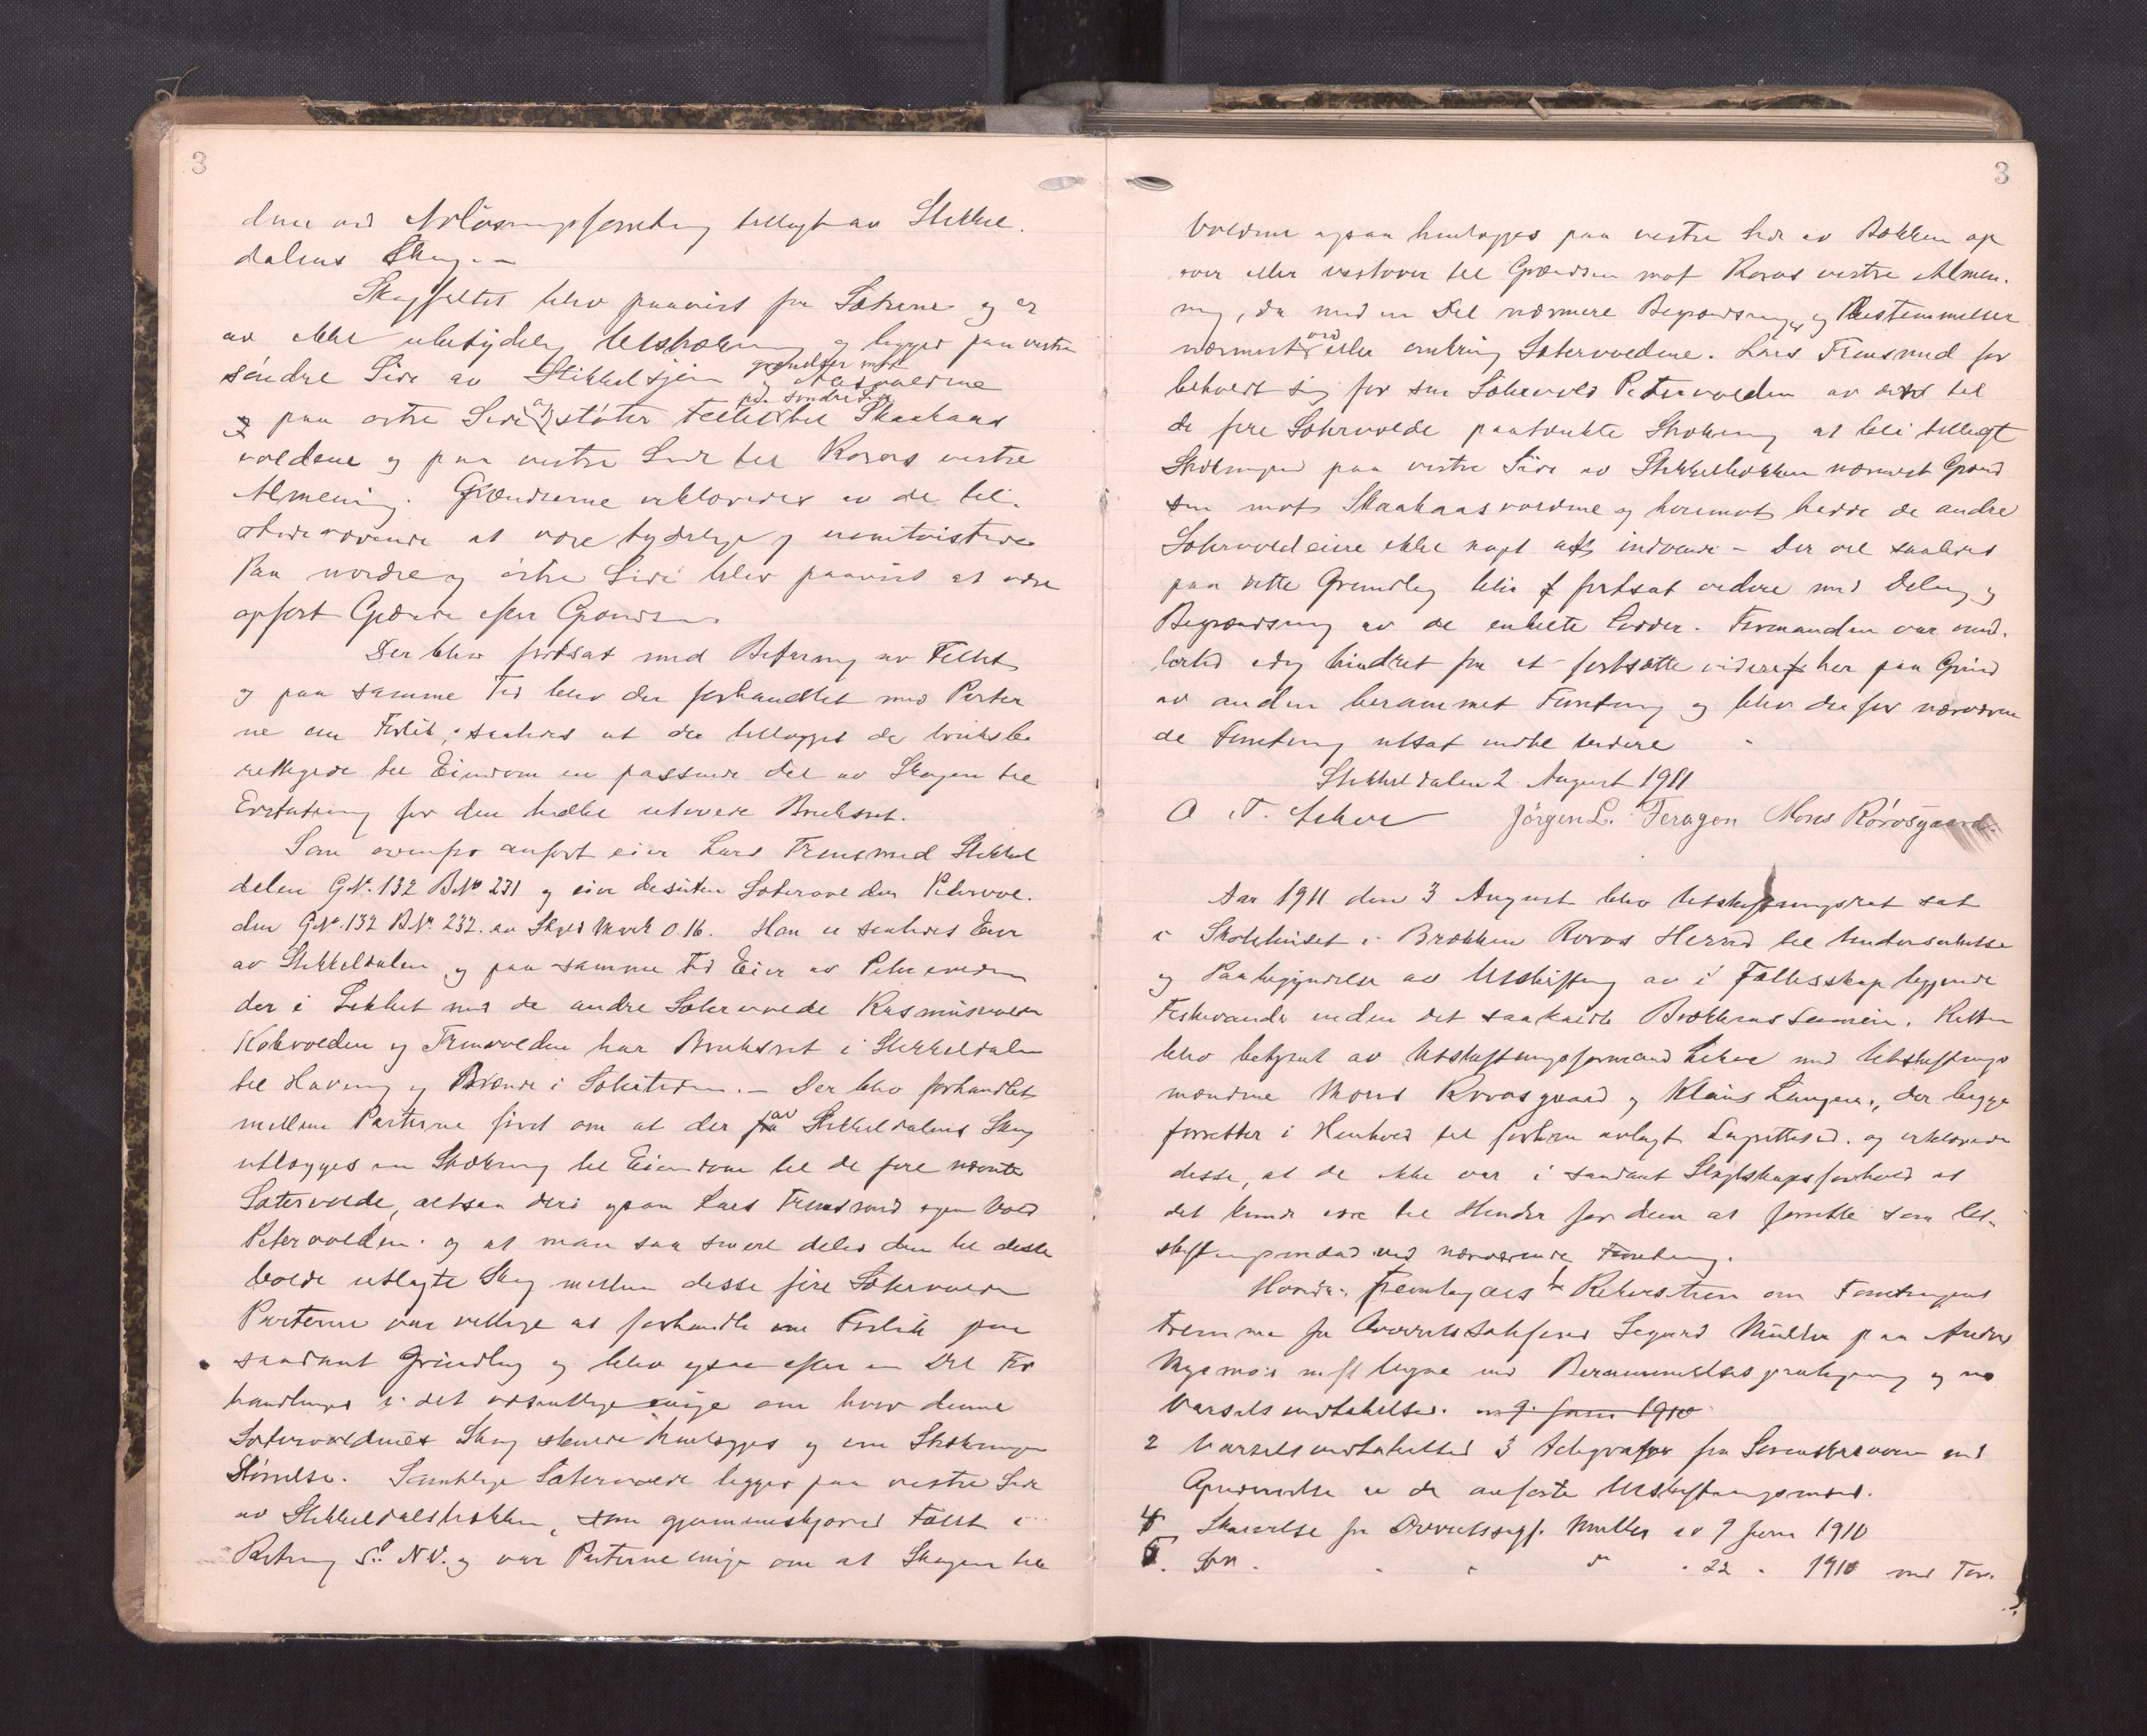 3
dene ved Avløsningsforretning tillagt av Stikkel.
dalens Skog. —
Skogfeltet blev paavist fra Sætrene og er
av ikke ubetydelig Utstrækning og ligger paa vestre
søndre Side av Stikkelsjøen grændser mot og voldene
og paa østre Side og støter Feltet paa søndre Side til Skaahaas
voldene og paa vestre Side til Røros vestre
Almening. Grændserne erklæredes av de til.
stedeværende at være tydelige og uomtvistede
Paa nordre og østre Side blev paavist at være
opført Gjærde efter Grændsen.
Der blev fortsat med Befaring av Feltet
og paa samme Tid blev der forhandlet med Parter
ne om Forlik, saaledes at der tillægges de bruksbe
rettigede til Eiendom en passende Del av Skogen til
Erstatning for den hidtil utøvede Bruksret.
Som ovenfor anført eier Lars Trensmed Stikkel
dalen GNr. 132 BNo 231 og eier desuten Sætervolden Petervol.
den GNr. 132 BNr. 232. av Skyld Mark 0.16. Han er saaledes Eier
av Stikkeldalen og paa samme Tid Eier av Petervolden
der i Likhet med de andre Sætervolde Rasmusvolden
Kokvolden og Trensvolden har Bruksret i Stikkeldalen
til Havning og Brænde i Sætertiden. — Der blev forhandlet
mellem Parterne først om at der av Stikkeldalens Skog
utlægges en Strækning til Eiendom til de fire nævnte
Sætervolde, altsaa deri ogsaa Lars Trensmed egen Vold
Petervolden. og at man saa senere deler den til disse
Volde utlagte Skog mellem disse fire Sætervolde
Parterne var villige at forhandle om Forlik paa
saadant Grundlag og blev ogsaa efter en Del For
handlinger i det væsentlige enige om hvor denne
Sætervoldenes Skog skulde henlægges og om Strækningens
Størrelse. Samtlige Sætervolde ligger paa vestre Side
av Stikkeldalsbækken, som gjennemskjærer Feltet i
Retning NV. og var Parterne enige om at Skogen til
3
Voldene ogsaa henlægges paa vestre Side av Bækken op
over eller vestover til Grændsen mot Røros vestre Almen.
ning, da med en Del nærmere Begrændsning og Bestemmelser
nærmest ved eller omkring Sætervoldene. Lars Trensmed for
beholdt sig for sin Sætervold Petervolden av den til
de fire Sætervolde paatænkte Strækning at bli tillagt
Strækningen paa vestre Side av Stikkelbækken nærmest Grænd
sen mot Skaahaasvoldene og herimot hadde de andre
Sætervoldeiere ikke noget at indvende — Der vil saaledes
paa dette Grundlag bli fortsat videre med Deling og
Begrændsning av de enkelte Lodder. Formanden var imid.
lertid idag hindret fra at fortsætte videre her paa Grund
av anden berammet Forretning og blev derfor nærværen
de Forretning utsat indtil videre
Stikkeldalen 2. August 1911
O. T. Jörgen L. Feragen Mons Rørosgaard.
Aar 1911 den 3 August blev Utskiftningsret sat
i Skolehuset i Brækken Røros Herred til Undersøkelse
og Paabegyndelse av Utskiftning av i Fællesskap liggende
Fiskevande inden det saakaldte Brækkens Sameie. Retten
blev betjent av Utskiftningsformand med Utskiftnings
mændene Mons Rørosgaard og Klaus Langen, der begge
forretter i Henhold til forhen avlagt Lagrettesed. og erklærede
disse, at de ikke var i saadant Slegtskapsforhold at
det kunde være til Hinder for dem at forrette som Ut-
skiftningsmænd ved nærværende Forretning.
Herredr. fremlagdes Rekvisition om Forretningens
Fremme fra Overretssakfører Sigurd Müller paa Anders
Nygaards m.fl. Vegne med Berammelsespaategning og
Varselsvedtakelse. av 9. Juni 1910
2 Varselsvedtakelser 3 Telegrafer fra Sorenskriveren med
Opnævnelse av de anførte Utskiftningsmænd.
4 Skrivelse fra Overretssagf. Müller av 9 Juni 1910
5. Do. " " do " 22 " 1910 med For.